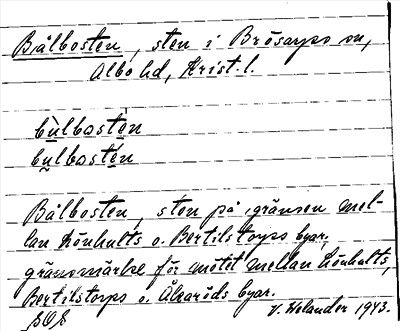 Bålbosten, sten i Brösarps sn,
Albo hd, Krist. l.
bùlbostèn
bulbosten
Bålbosten, sten på gränsen mel-
lan Lönhults o. Bertilstorps byar,
gränsmärke för mötet mellan Lönhults,
Bertilstorps o. Ålearöds byar.
V. Helander 1943.